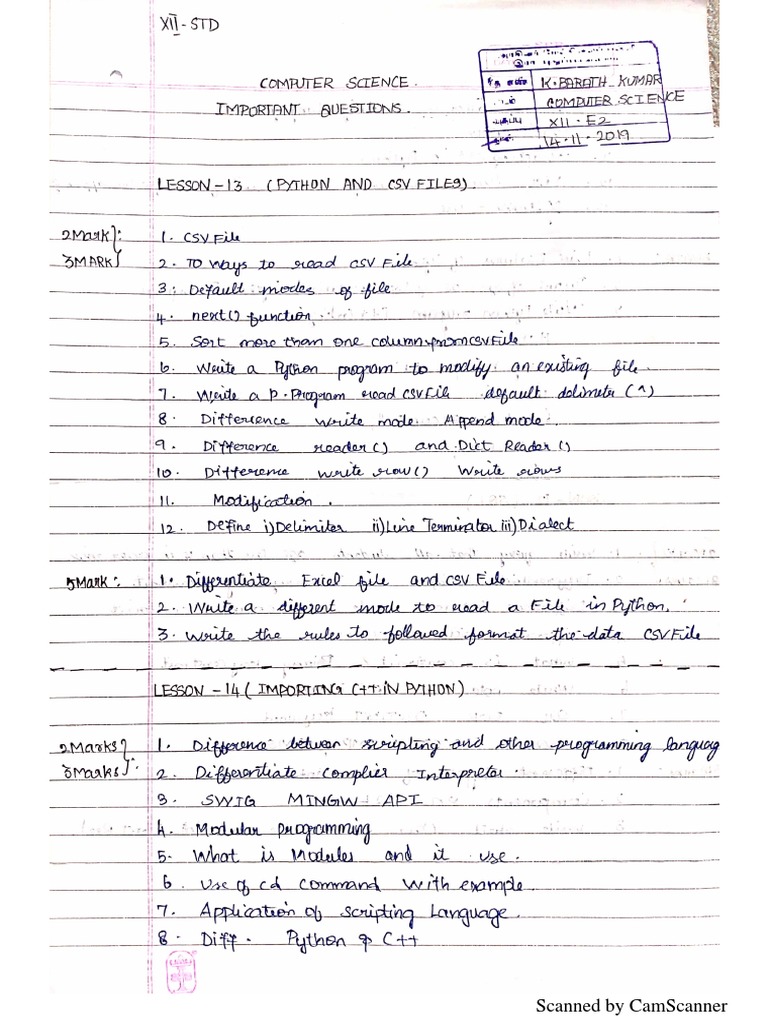 XII - STD
COMPUTER SCIENCE.
IMPORTANT QUESTIONS.
K. BARATH KUMAR
COMPUTER SCIENCE
XII - E2
14-11-2019
LESSON - 13 (PYTHON AND CSV FILES)
2Mark}:
3MARK}
1. CSV File
2. TO Ways to read CSV File
3. Default modes of file
4. next() function
5. Sort more than one column from CSV File
6. Write a Python program to modify an existing file.
7. Write a P. Program read CSV File default dolimeter (^)
8. Difference write mode Append mode.
9. Difference reader() and Dict Reader()
10. Difference write row() Write rows
11. Modification.
12. Define i) Delimiter ii) Line Terminator iii) Dialect
5Mark:
1. Differentiate Excel file and CSV File
2. Write a different mode to read a File in Python.
3. Write the rules to followed format the data CSV File
LESSON - 14 (IMPORTING C++ IN PYTHON)
2Marks}
3Marks}:
1. Difference between scripting and other programming languag
2. Differentiate Complier Interpretor
3. SWIG MINGW API
4. Modular programming
5. What is Modules and it use.
6. Use of cd command with example
7. Application of scripting Language.
8. Diff. Python & C++
Scanned by CamScanner